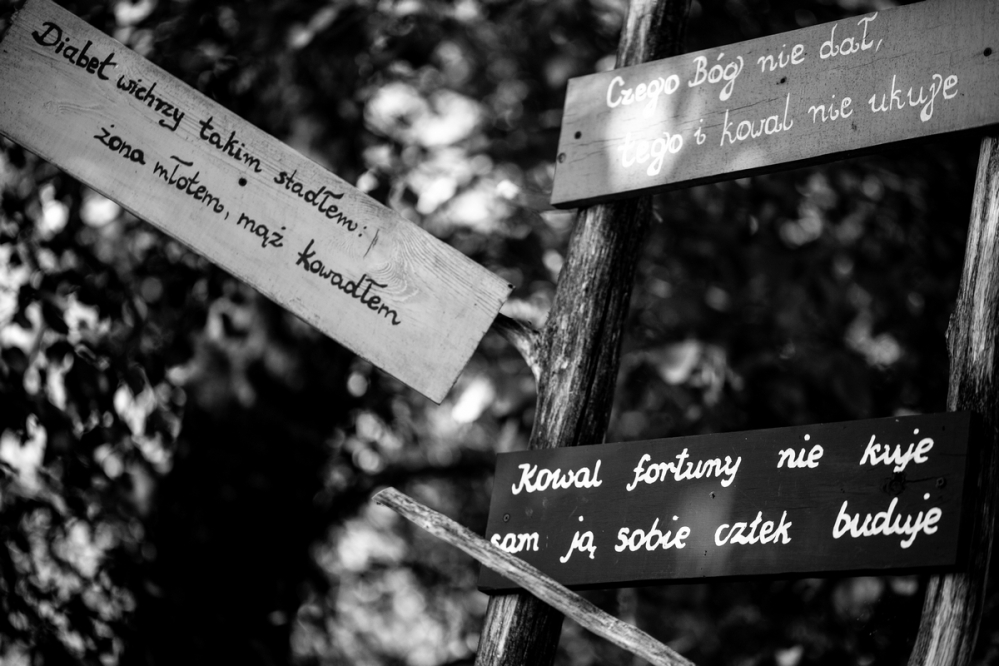 Diabeł wichrzy takim stadłem:
żona młotem, mąż kowadłem
Czego Bóg nie dał,
tego i kowal nie ukuje
Kowal fortuny nie kuje
sam ją sobie człek buduje